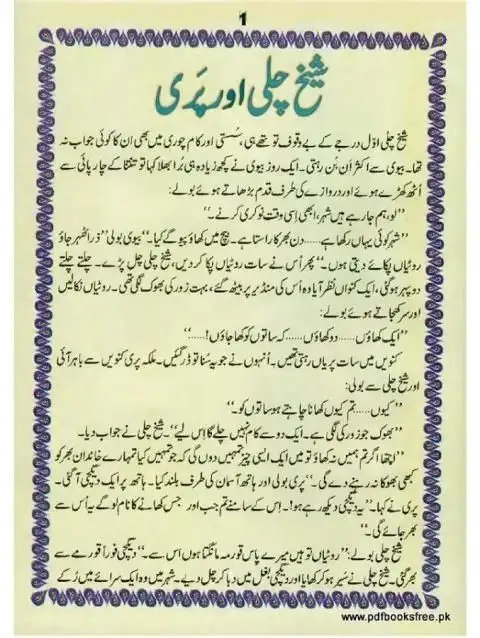 1
شیخ چلی اور پَری
شیخ چلی اوّل درجے کے بے وقوف تو تھے ہی، سُستی اور کام چوری میں بھی ان کا کوئی جواب نہ
تھا۔ بیوی سے اکثر اَن بَن رہتی۔ ایک روز بیوی نے کچھ زیادہ ہی بُرا بھلا کہا تو تنتنا کے چارپائی سے
اُٹھ کھڑے ہوئے اور دروازے کی طرف قدم بڑھاتے ہوئے بولے:
’’لو، ہم جا رہے ہیں شہر، ابھی اِسی وقت نوکری کرنے۔‘‘
’’شہر کوئی یہاں رکھا ہے.....دن بھر کا راستا ہے۔ بیچ میں کھاؤ پیو گے کیا۔‘‘ بیوی بولی ’’ذرا ٹھہر جاؤ
روٹیاں پکائے دیتی ہوں۔‘‘ پھر اُس نے سات روٹیاں پکا کر دیں، شیخ چلی چل پڑے۔ چلتے چلتے
دوپہر ہو گئی، ایک کنواں نظر آیا وہ اُس کی منڈیر پر بیٹھ گئے، بہت زور کی بھوک لگی تھی۔ روٹیاں نکالیں
اور سر کھجاتے ہوئے بولے:
’’ایک کھاؤں.....دو کھاؤں.....کہ ساتوں کو کھا جاؤں!.....‘‘
کنویں میں سات پریاں رہتی تھیں۔ اُنہوں نے جو یہ سُنا تو ڈر گئیں۔ ملکہ پری کنویں سے باہر آئی
اور شیخ چلی سے بولی:
’’کیوں.....تم کیوں کھانا چاہتے ہو ساتوں کو۔‘‘
’’بھوک جو زور کی لگی ہے۔ ایک دو سے کام نہیں چلے گا اِس لیے‘‘۔ شیخ چلی نے جواب دیا۔
’’اچھا اگر تم ہمیں نہ کھاؤ تو میں ایک ایسی چیز تمہیں دوں گی کہ جو تمہیں کیا تمہارے خاندان بھر کو
کبھی بھوکا نہ رہنے دے گی۔‘‘ پری بولی اور ہاتھ آسمان کی طرف بلند کیا۔ ہاتھ پر ایک دیگچی آ گئی۔
پری نے کہا۔ ’’یہ دیگچی دیکھ رہے ہو!۔ اِس کے سامنے تم جب اور جس کھانے کا نام لو گے یہ اُس سے
بھر جائے گی۔‘‘
شیخ چلی بولے: ’’روٹیاں تو ہیں میرے پاس قورمہ مانگتا ہوں اس سے۔‘‘ دیگچی فوراً قورمے سے
بھر گئی۔ شیخ چلی نے سَیر ہو کر کھایا اور دیگچی بغل میں دبا کر چل دیے۔ شہر میں وہ ایک سرائے میں رُکے
www.pdfbooksfree.pk